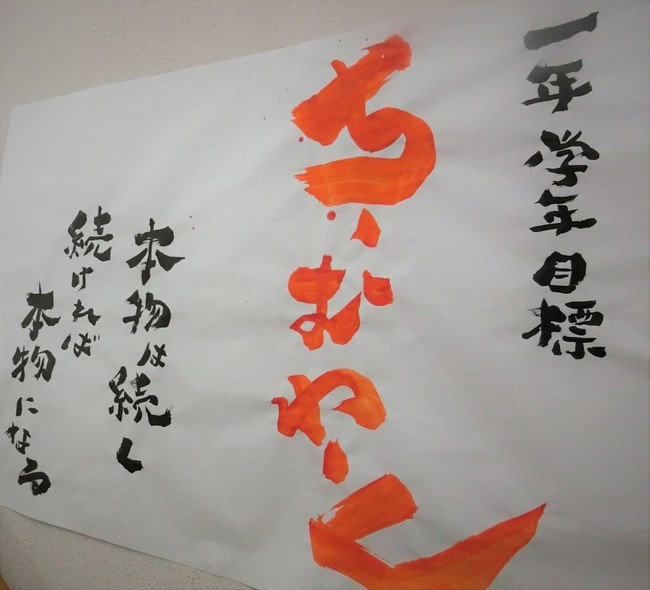 一年学年目標
ちーむわーく
本物は続く
続ければ
本物になる